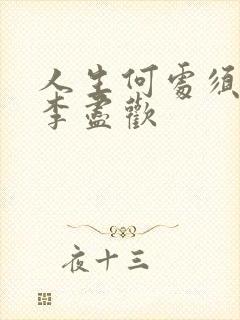 人生何處須
李盡歡
夜十三